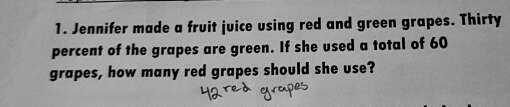 1. Jennifer made a fruit juice using red and green grapes. Thirty
percent of the grapes are green. If she used a total of 60
grapes, how many red grapes should she use?
42 red grapes